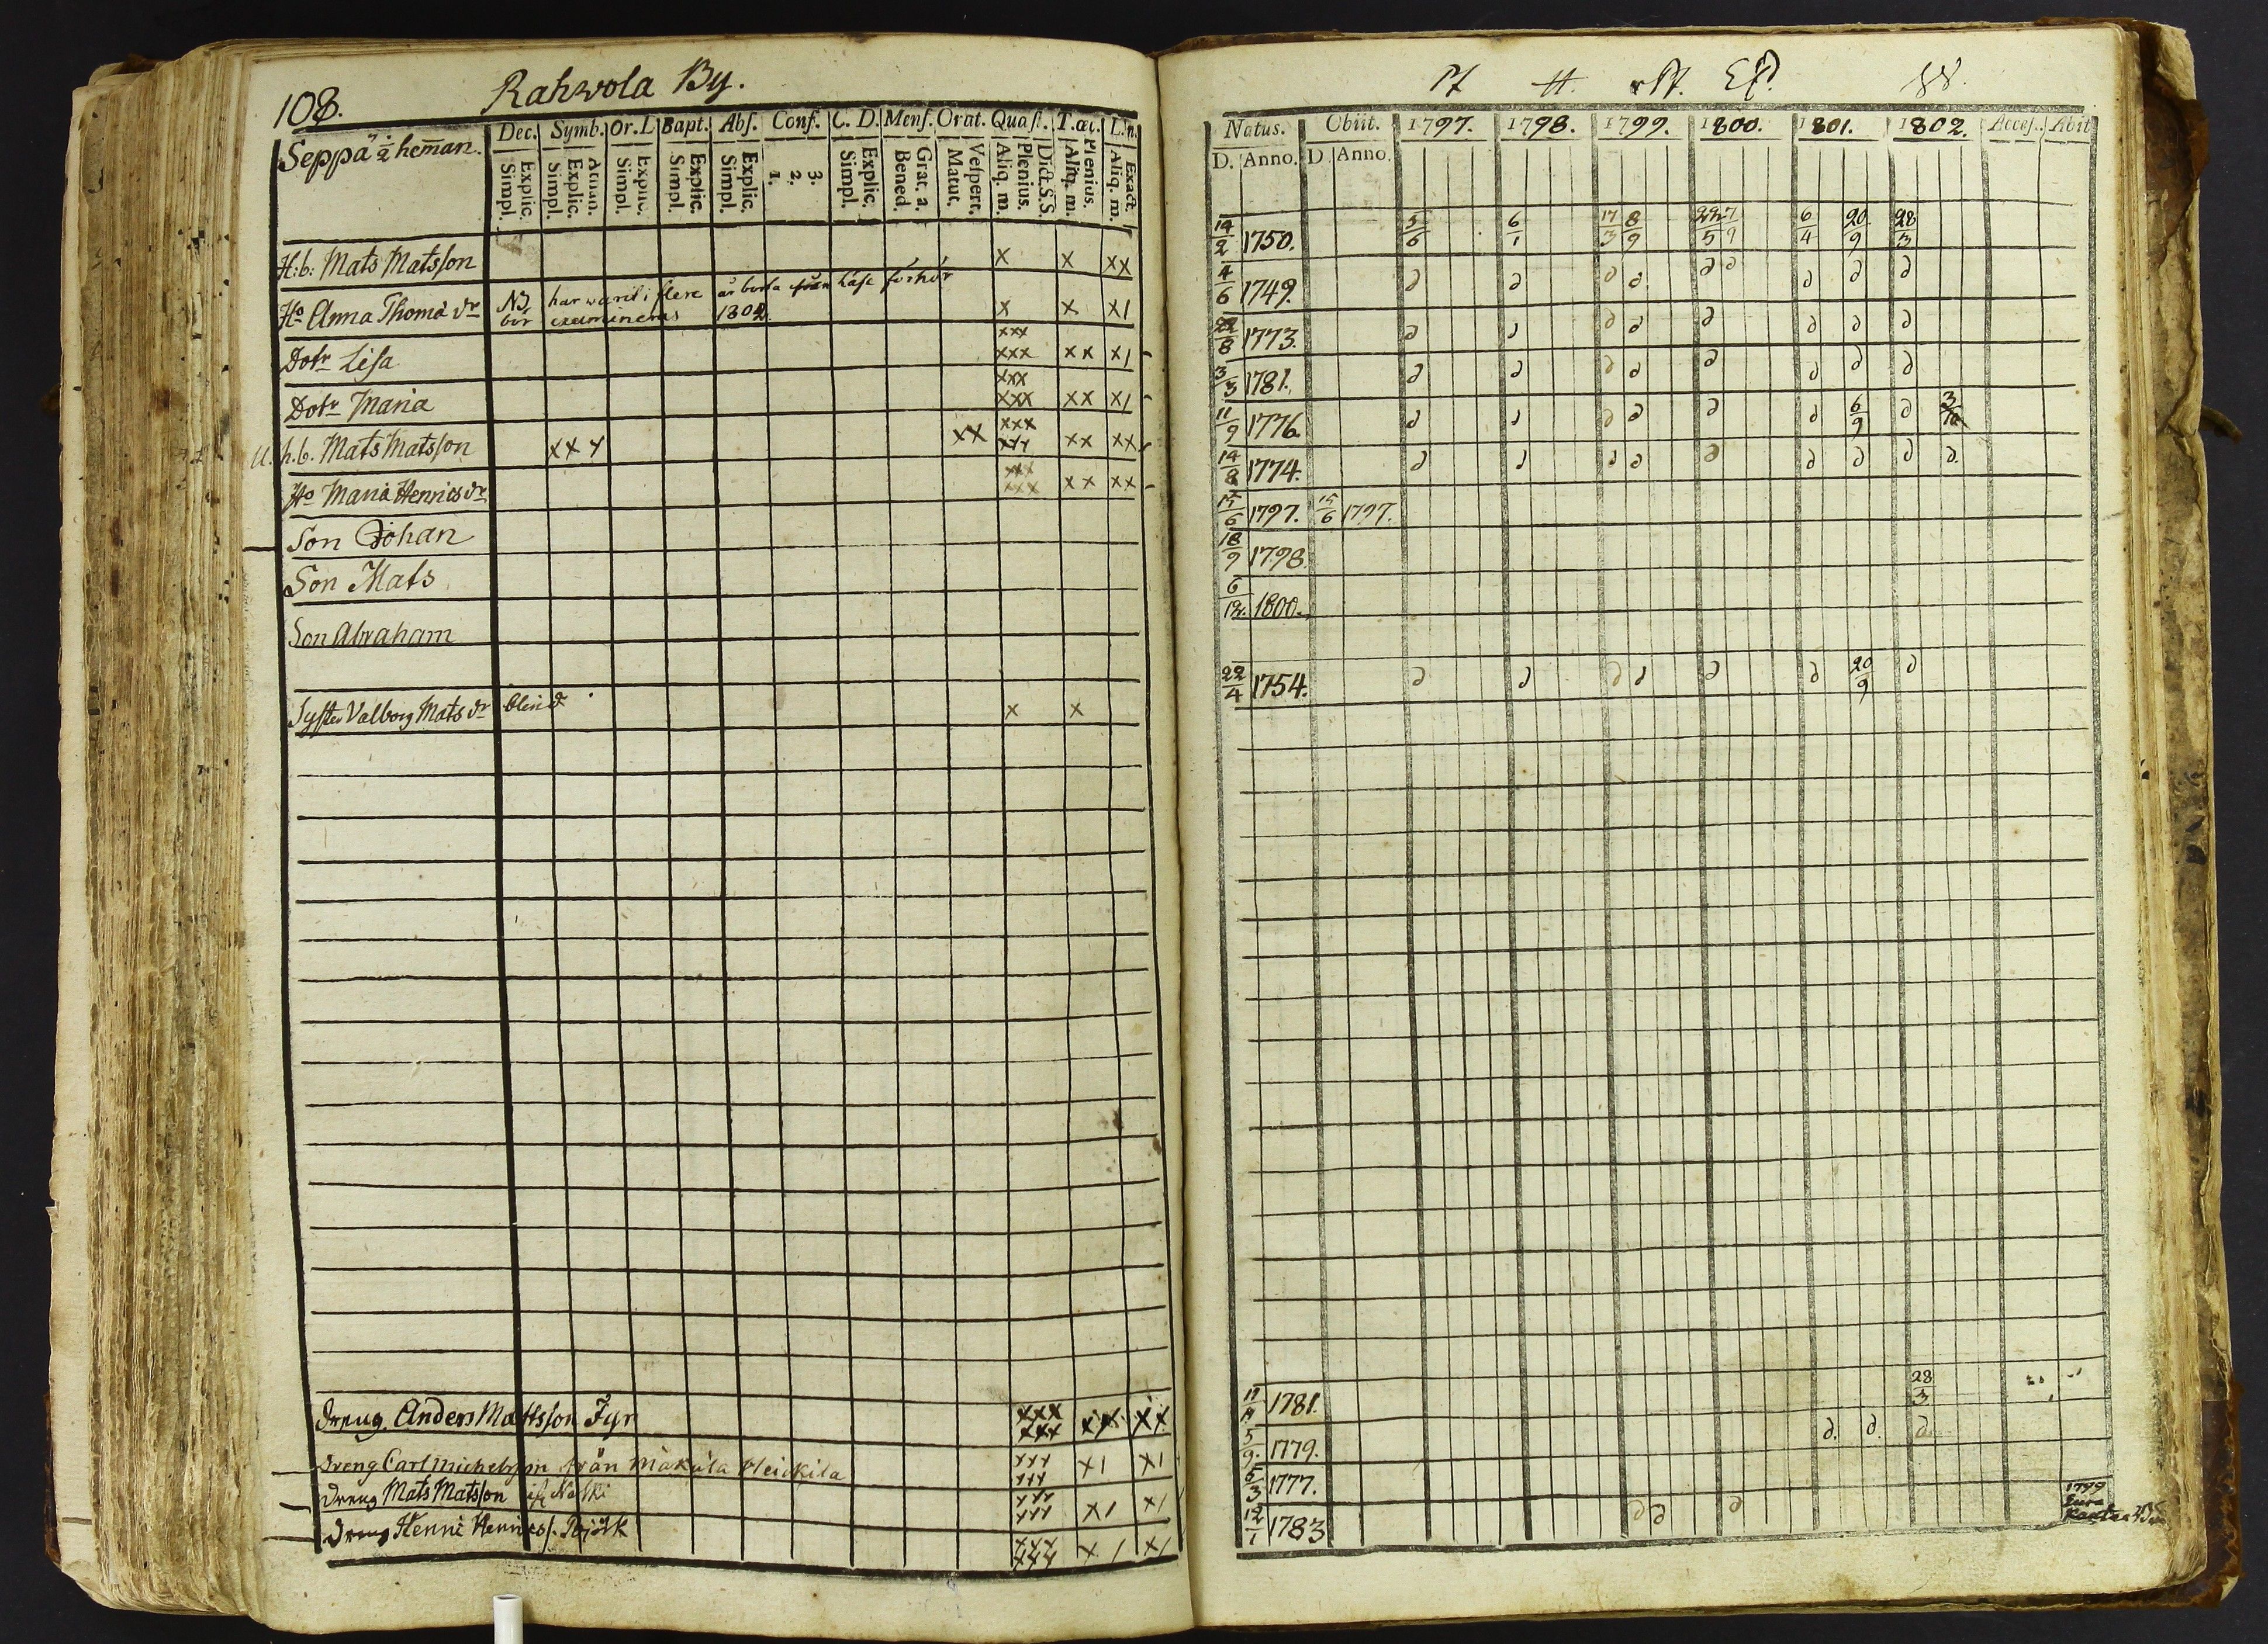 108. Rahwola By.
Seppä 1/2 heman.
Dec. Symb. Or. L. Bapt. Abſ. Conf. C. D. Menſ. Orat. Quæſt. T. œc. L. n.
Explic. Simpl. Athan. Explic. Simpl. Explic. Simpl. Explic. Simpl. Explic. Simpl. 3. 2. 1. Explic. Simpl. Grat. a. Bened. Veſpert. Matut. Dict. S. S. Plenius. Aliq. m. Plenius. Aliq. m. Exact. Aliq. m.
H: b: Mats Matsſon x x xx
Ho Anna Thoma dr NB har warit i flere år borta från Läſe förhör x x x1
bör examineras 1802.
Dotr Liſa xxx xxx xx x1
Dotr Maria xxx xxx xx x1
U. h. b. Mats Matsſon xxx xx xxx xxx xx xx
Ho Maria Henrics dr xxx xxx xx xx
Son Johan
Son Mats
Son Abraham
Syſter Valborg Mats dr blind x x
Dreng Anders Mattsſon Fyr xxx xxx xx xx
Dreng Carl Michelsſon från x1 x1
Dreng Mats Matsſon x1 x1
Dreng Henric Henricsſ. Björk x1 x1
Natus. Obiit. 1797. 1798. 1799. 1800. 1801. 1802. Acceſ. Abit
D. Anno. D. Anno.
14/2 1750. 5/6 6/1 17/3 8/9 6/4 20/9 28/3
4/6 1749.
22/8 1773.
3/3 1781.
11/9 1776. 6/9 3/10
14/8 1774.
15/6 1797. 15/6 1797.
18/9 1798.
6/12 1800.
22/4 1754. 20/9
1781. 28/3
5/9 1779.
5/3 1777.
12/1 1783
1799